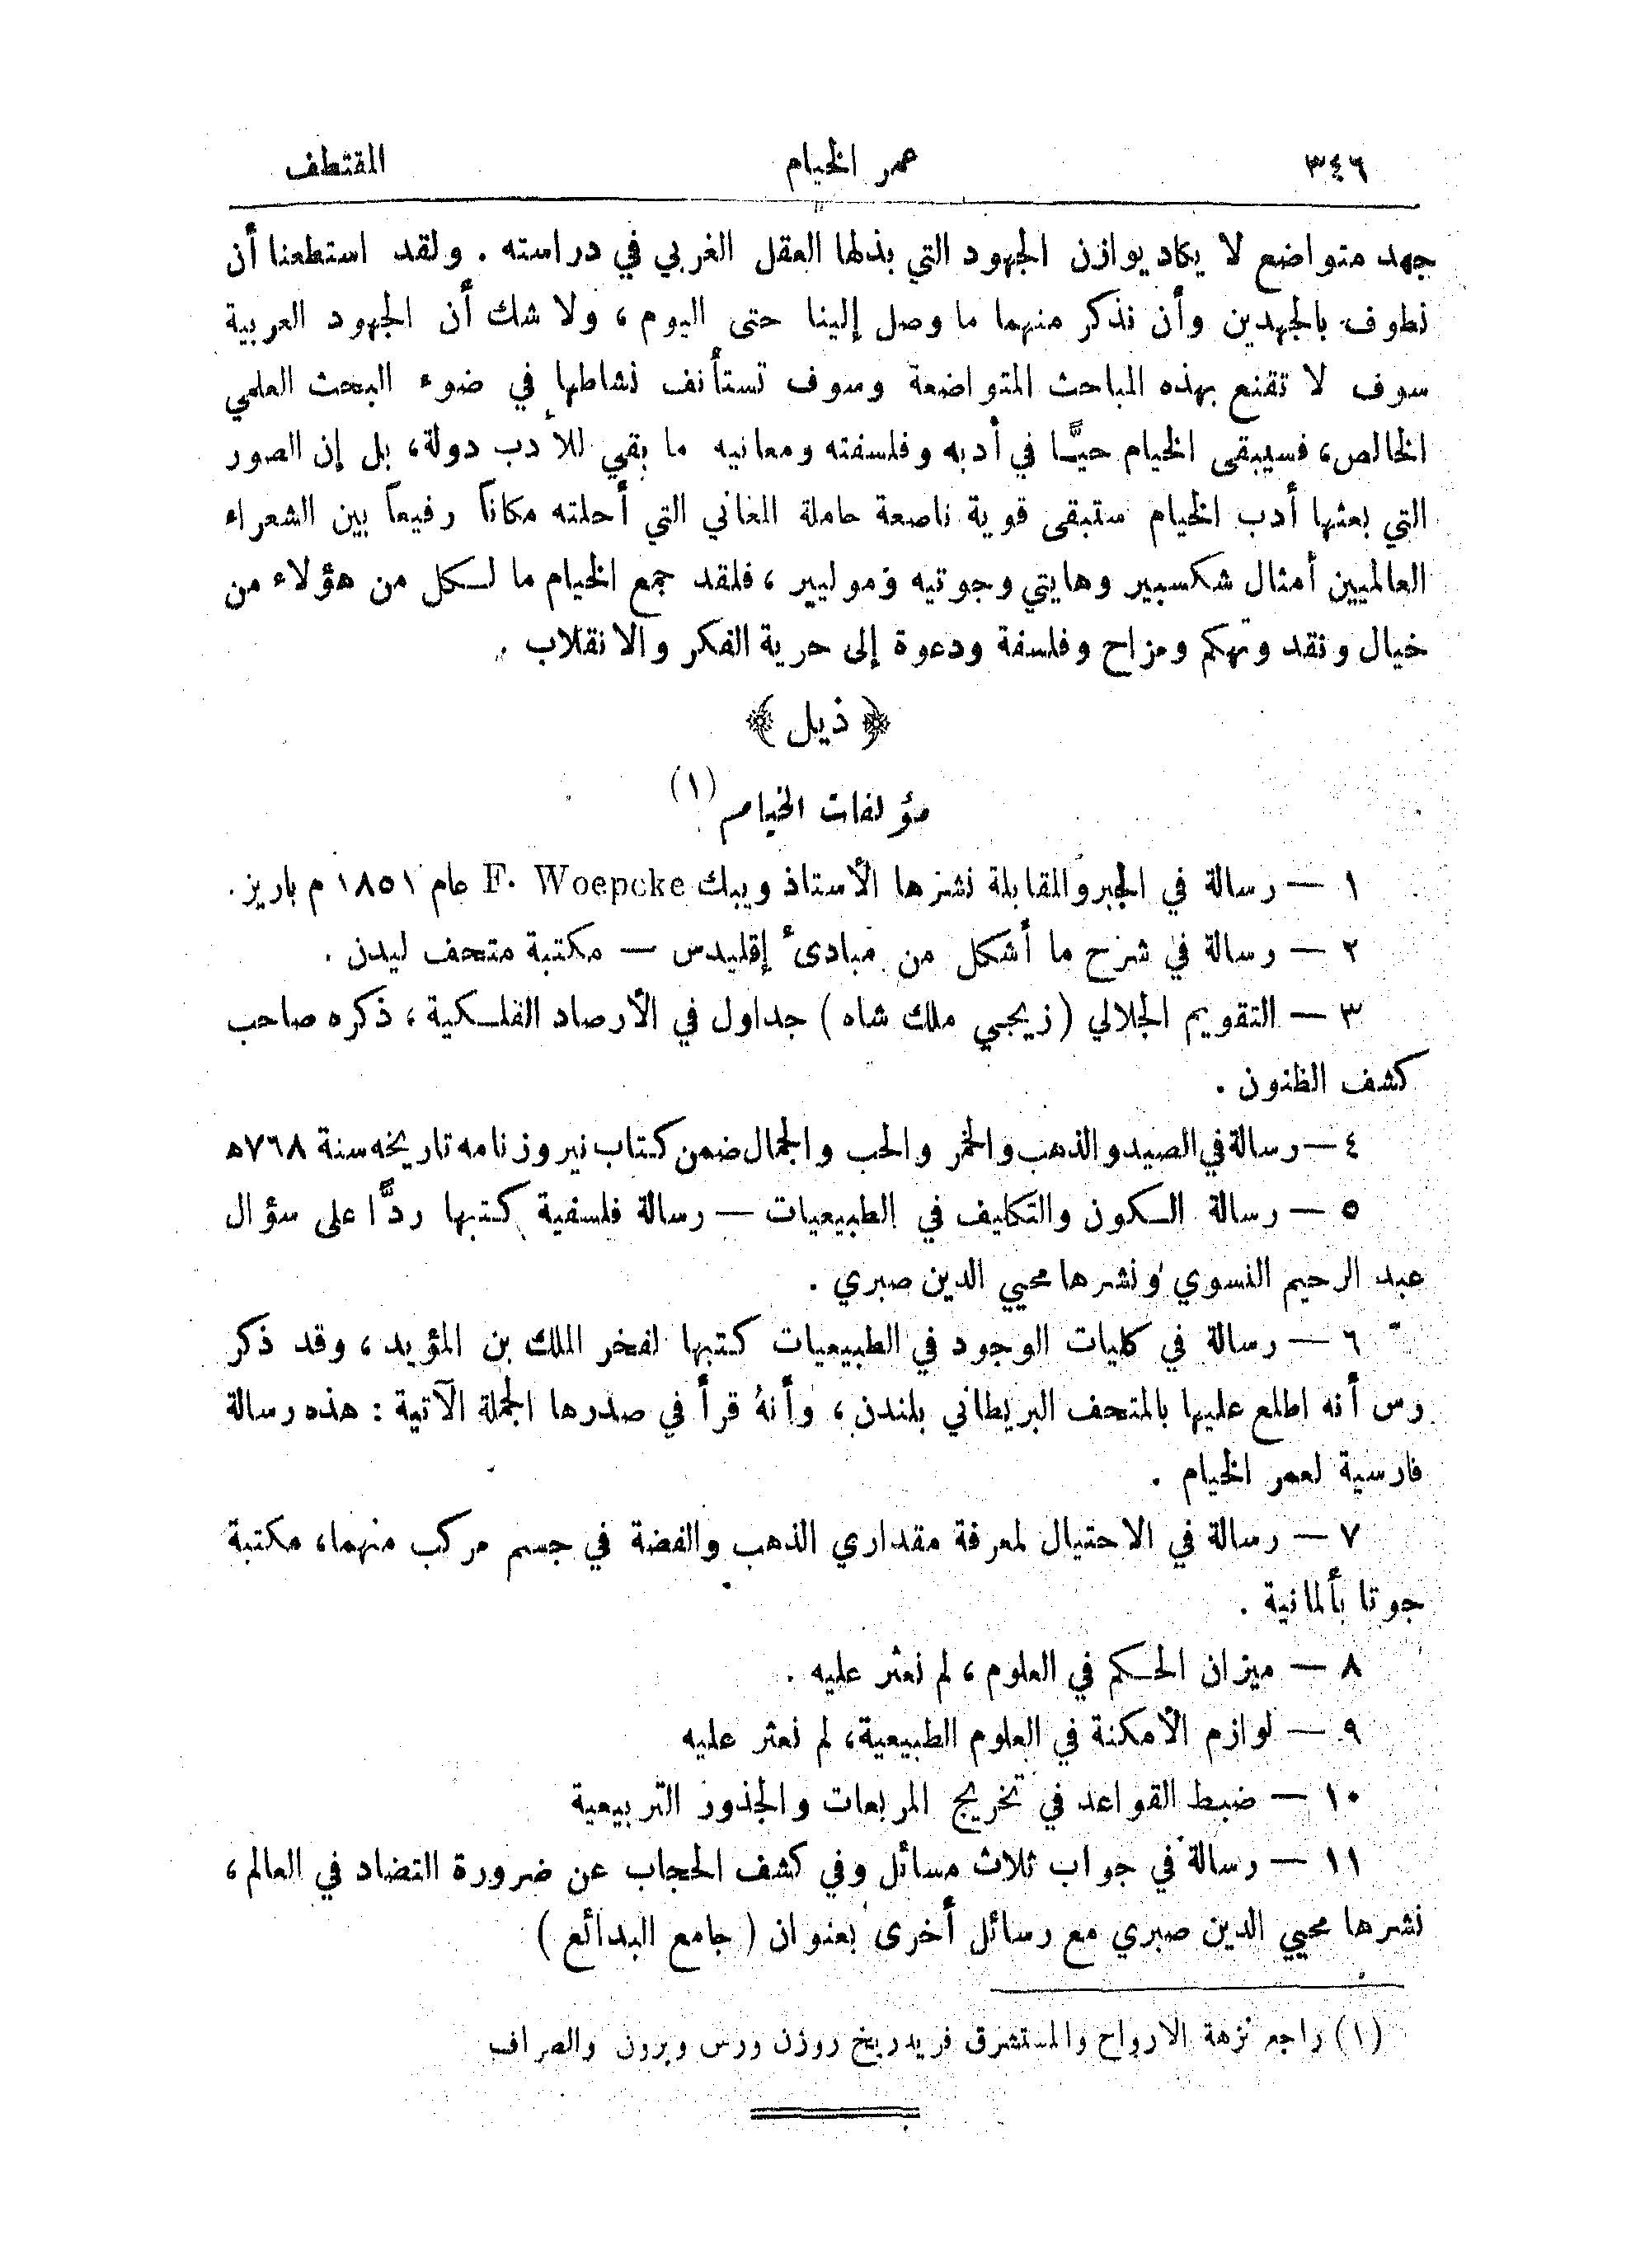 ٣٤٦ عمر الخيام المقتطف
جهد متواضع لا يكاد يوازن الجهود التي بذلها العقل الغربي في دراسته . ولقد استطعنا أن
نطوف بالجهدين وأن نذكر منهما ما وصل إلينا حتى اليوم ، ولا شك أن الجهود العربية
سوف لا تقنع بهذه المباحث المتواضعة وسوف تستأنف نشاطها في ضوء البحث العلمي
الخالص، فسيبقى الخيام حيًّا في أدبه وفلسفته ومعانيه ما بقي للأدب دولة، بل إن الصور
التي بعثها أدب الخيام ستبقى قوية ناصعة حاملة المغاني التي أحلته مكاناً رفيعاً بين الشعراء
العالميين أمثال شكسبير وهايتي وجوتيه وموليير ، فلقد جمع الخيام ما لكل من هؤلاء من
خيال ونقد وتهكم ومزاح وفلسفة ودعوة إلى حرية الفكر والانقلاب .
﴿ ذيل ﴾
مؤلفات الخيام (١)
١ — رسالة في الجبر والمقابلة نشرها الأستاذ ويبك F. Woepcke عام ١٨٥١ م باريز .
٢ — رسالة في شرح ما أشكل من مبادئ إقليدس — مكتبة متحف ليدن .
٣ — التقويم الجلالي ( زيجي ملك شاه ) جداول في الأرصاد الفلكية ، ذكره صاحب
كشف الظنون .
٤ — رسالة في الصيد والذهب والخمر والحب والجمال ضمن كتاب نيروزنامه تاريخه سنة ٧٦٨ه
٥ — رسالة الكون والتكليف في الطبيعيات — رسالة فلسفية كتبها ردًّا على سؤال
عبد الرحيم النسوي ونشرها محيي الدين صبري .
٦ — رسالة في كليات الوجود في الطبيعيات كتبها لفخر الملك بن المؤيد ، وقد ذكر
رس أنه اطلع عليها بالمتحف البريطاني بلندن ، وأنهُ قرأ في صدرها الجملة الآتية : هذه رسالة
فارسية لعمر الخيام .
٧ — رسالة في الاحتيال لمعرفة مقداري الذهب والفضة في جسم مركب منهما، مكتبة
جوتا بألمانية .
٨ — ميزان الحكم في العلوم ، لم نعثر عليه .
٩ — لوازم الأمكنة في العلوم الطبيعية، لم نعثر عليه
١٠ — ضبط القواعد في تخريج المربعات والجذور التربيعية
١١ — رسالة في جواب ثلاث مسائل وفي كشف الحجاب عن ضرورة التضاد في العالم ،
نشرها محيي الدين صبري مع رسائل أخرى بعنوان ( جامع البدائع )
(١) راجع نزهة الارواح والمستشرق فريدريخ روزن ورس وبرون والصراف